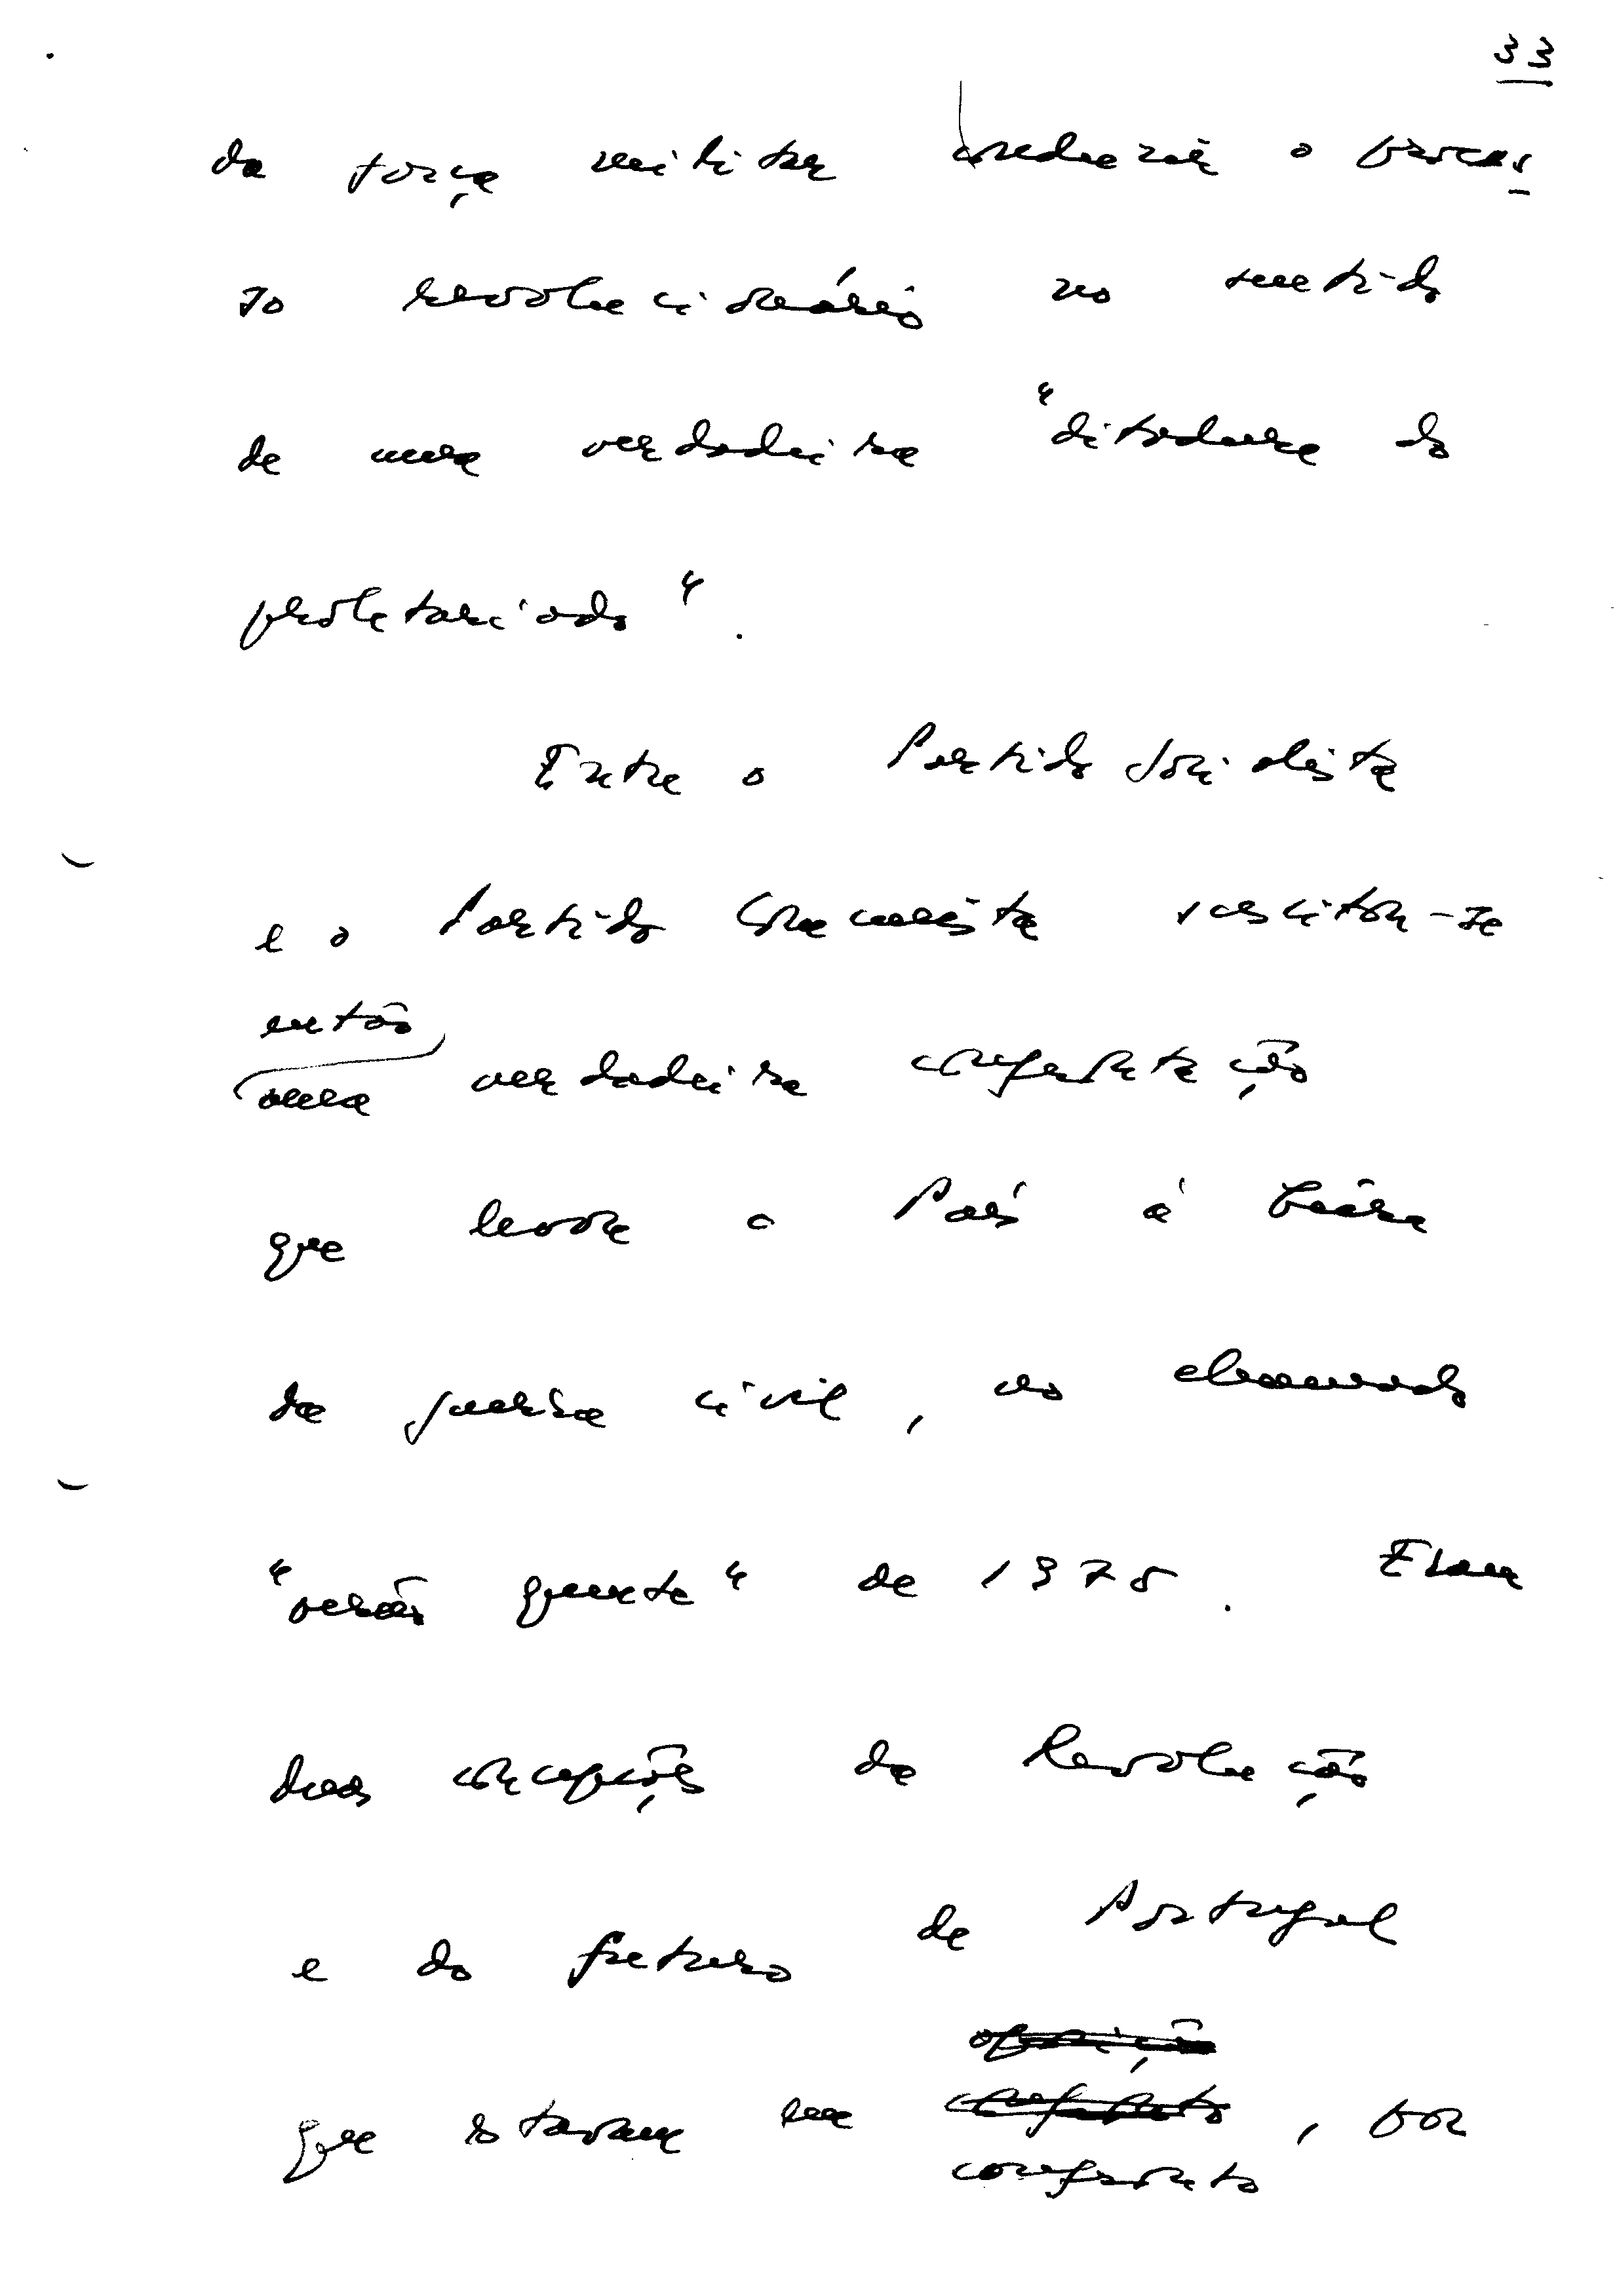 33
da força militar conduzir o proces
so revolucionário no sentido
de uma verdadeira "ditadura do
proletariado".
Entre o Partido Socialista
e o Partido Comunista suscitou-se
então
uma verdadeira confrontação
que levou o País à beira
da guerra civil, no chamado
"verão quente" de 1975. Eram
duas concepções da Revolução
e do futuro de Portugal
oposição
que estavam em confronto, por
confronto